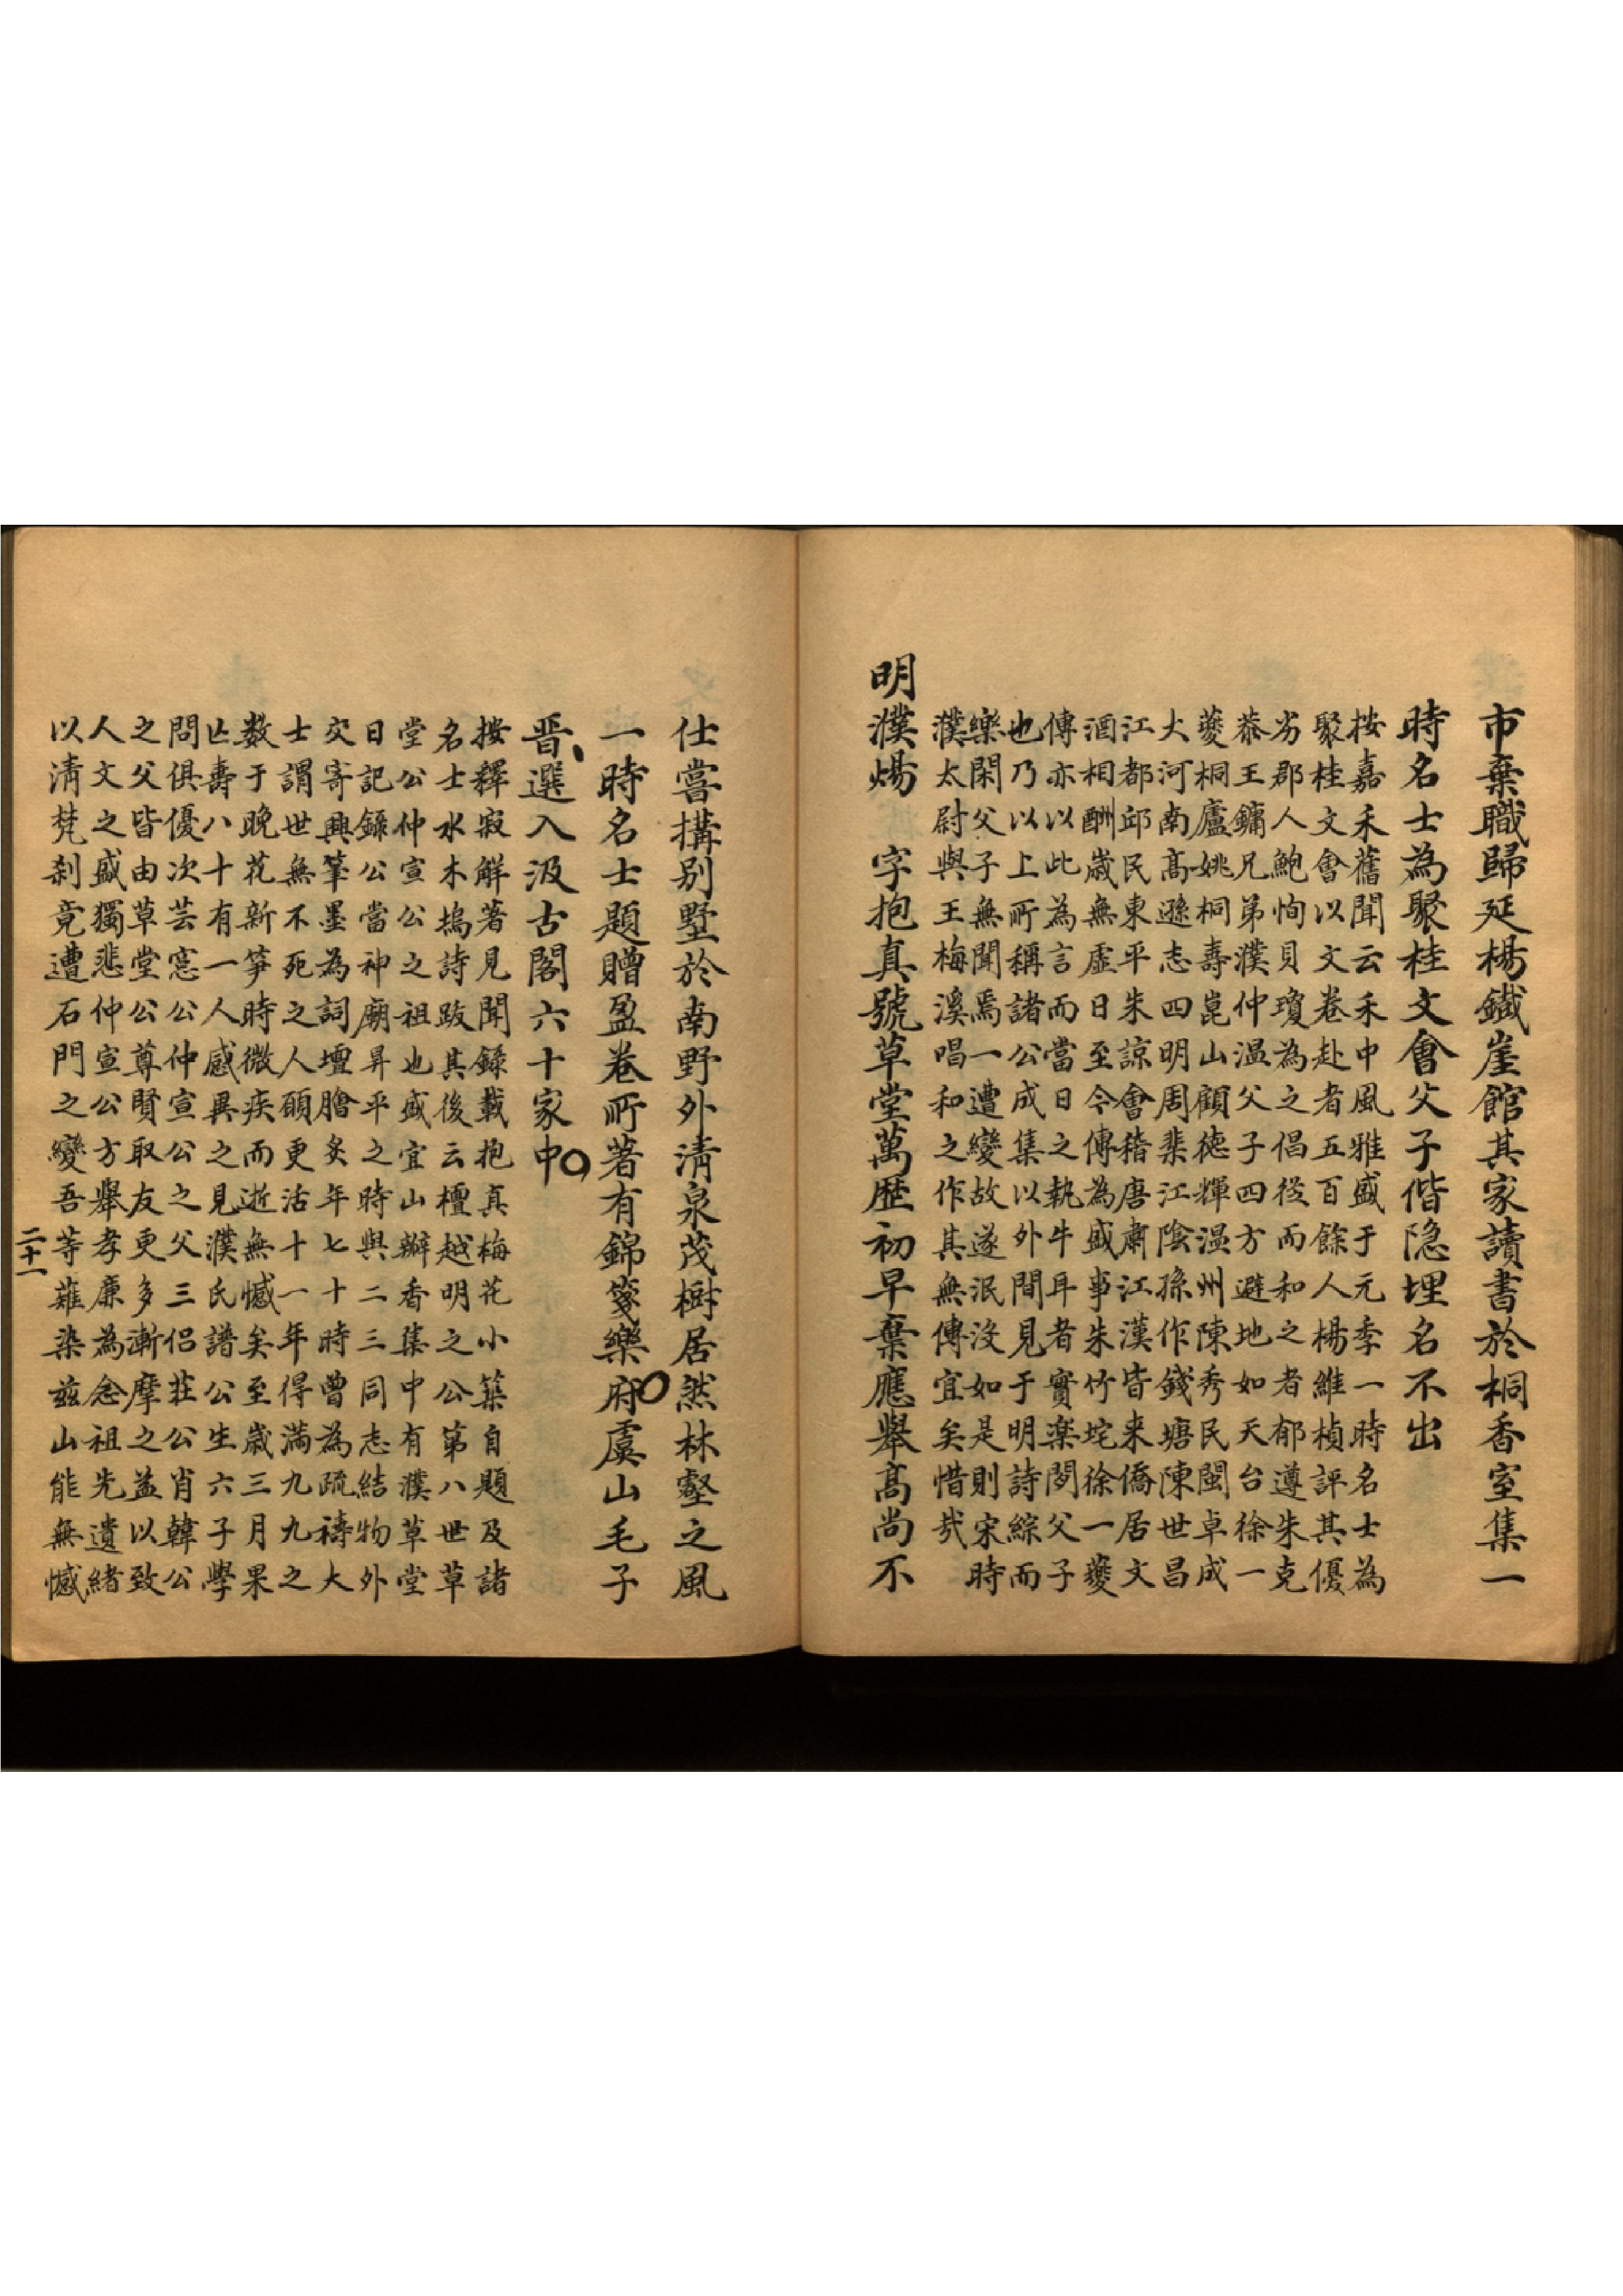 市棄職歸延楊鐵崖館其家讀書於桐香室集一
時名士為聚桂文會父子偕隐埋名不出
按嘉禾舊聞云禾中風雅盛于元季一時名士為
聚桂文會以文卷赴者五百餘人楊維楨評其優
劣郡人鮑恂貝瓊為之倡從而和之者郁遵朱克
恭王鏞兄弟濮仲温父子四方避地如天台徐一
夔桐廬姚桐壽崑山顧徳輝温州陳秀民閩卓成
大河南高遜志四明周棐江陰孫作錢塘陳世昌
江都邱民東平朱諒會稽唐肅江漢皆来僑居文
酒相酬歲無虚日至今傳為盛事朱竹垞徐一夔
傳亦以此為言而當日之執牛耳者實楽閒父子
也乃以上所稱諸公成集以外間見于明詩綜而
樂閑父子無聞焉一遭變故遂泯沒如是則宋時
濮太尉與王梅溪唱和之作其無傳宜矣惜㢤
明濮煬 字抱真號草堂萬歴初早棄應舉髙尚不
仕嘗搆别墅於南野外清泉茂樹居然林壑之風
一時名士題贈盈卷所著有錦箋樂府虞山毛子
晋選入汲古閣六十家中
按釋寂解著見聞錄載抱真梅花小築自題及諸
名士水木塢詩跋其後云檀越明之公第八世草
堂公仲宣公之祖也盛宜山辦香集中有濮草堂
日記錄公當神廟昇平之時與二三同志結物外
交寄興筆墨為詞壇膾炙年七十時曽為疏禱大
士謂世無不死之人願更活十一年得滿九九之
数于晚花新笋時微疾而逝無憾矣至歲三月果
亡壽八十有一人感異之見濮氏譜公生六子學
問俱優次芸窓公仲宣公之父三侣莊公肖韓公
之父皆由草堂公尊賢取友更多漸摩之益以致
人文之盛獨悲仲宣公方舉孝廉為念祖先遺緒
以清梵刹竟遭石門之變吾等薙染兹山能無憾
二十一